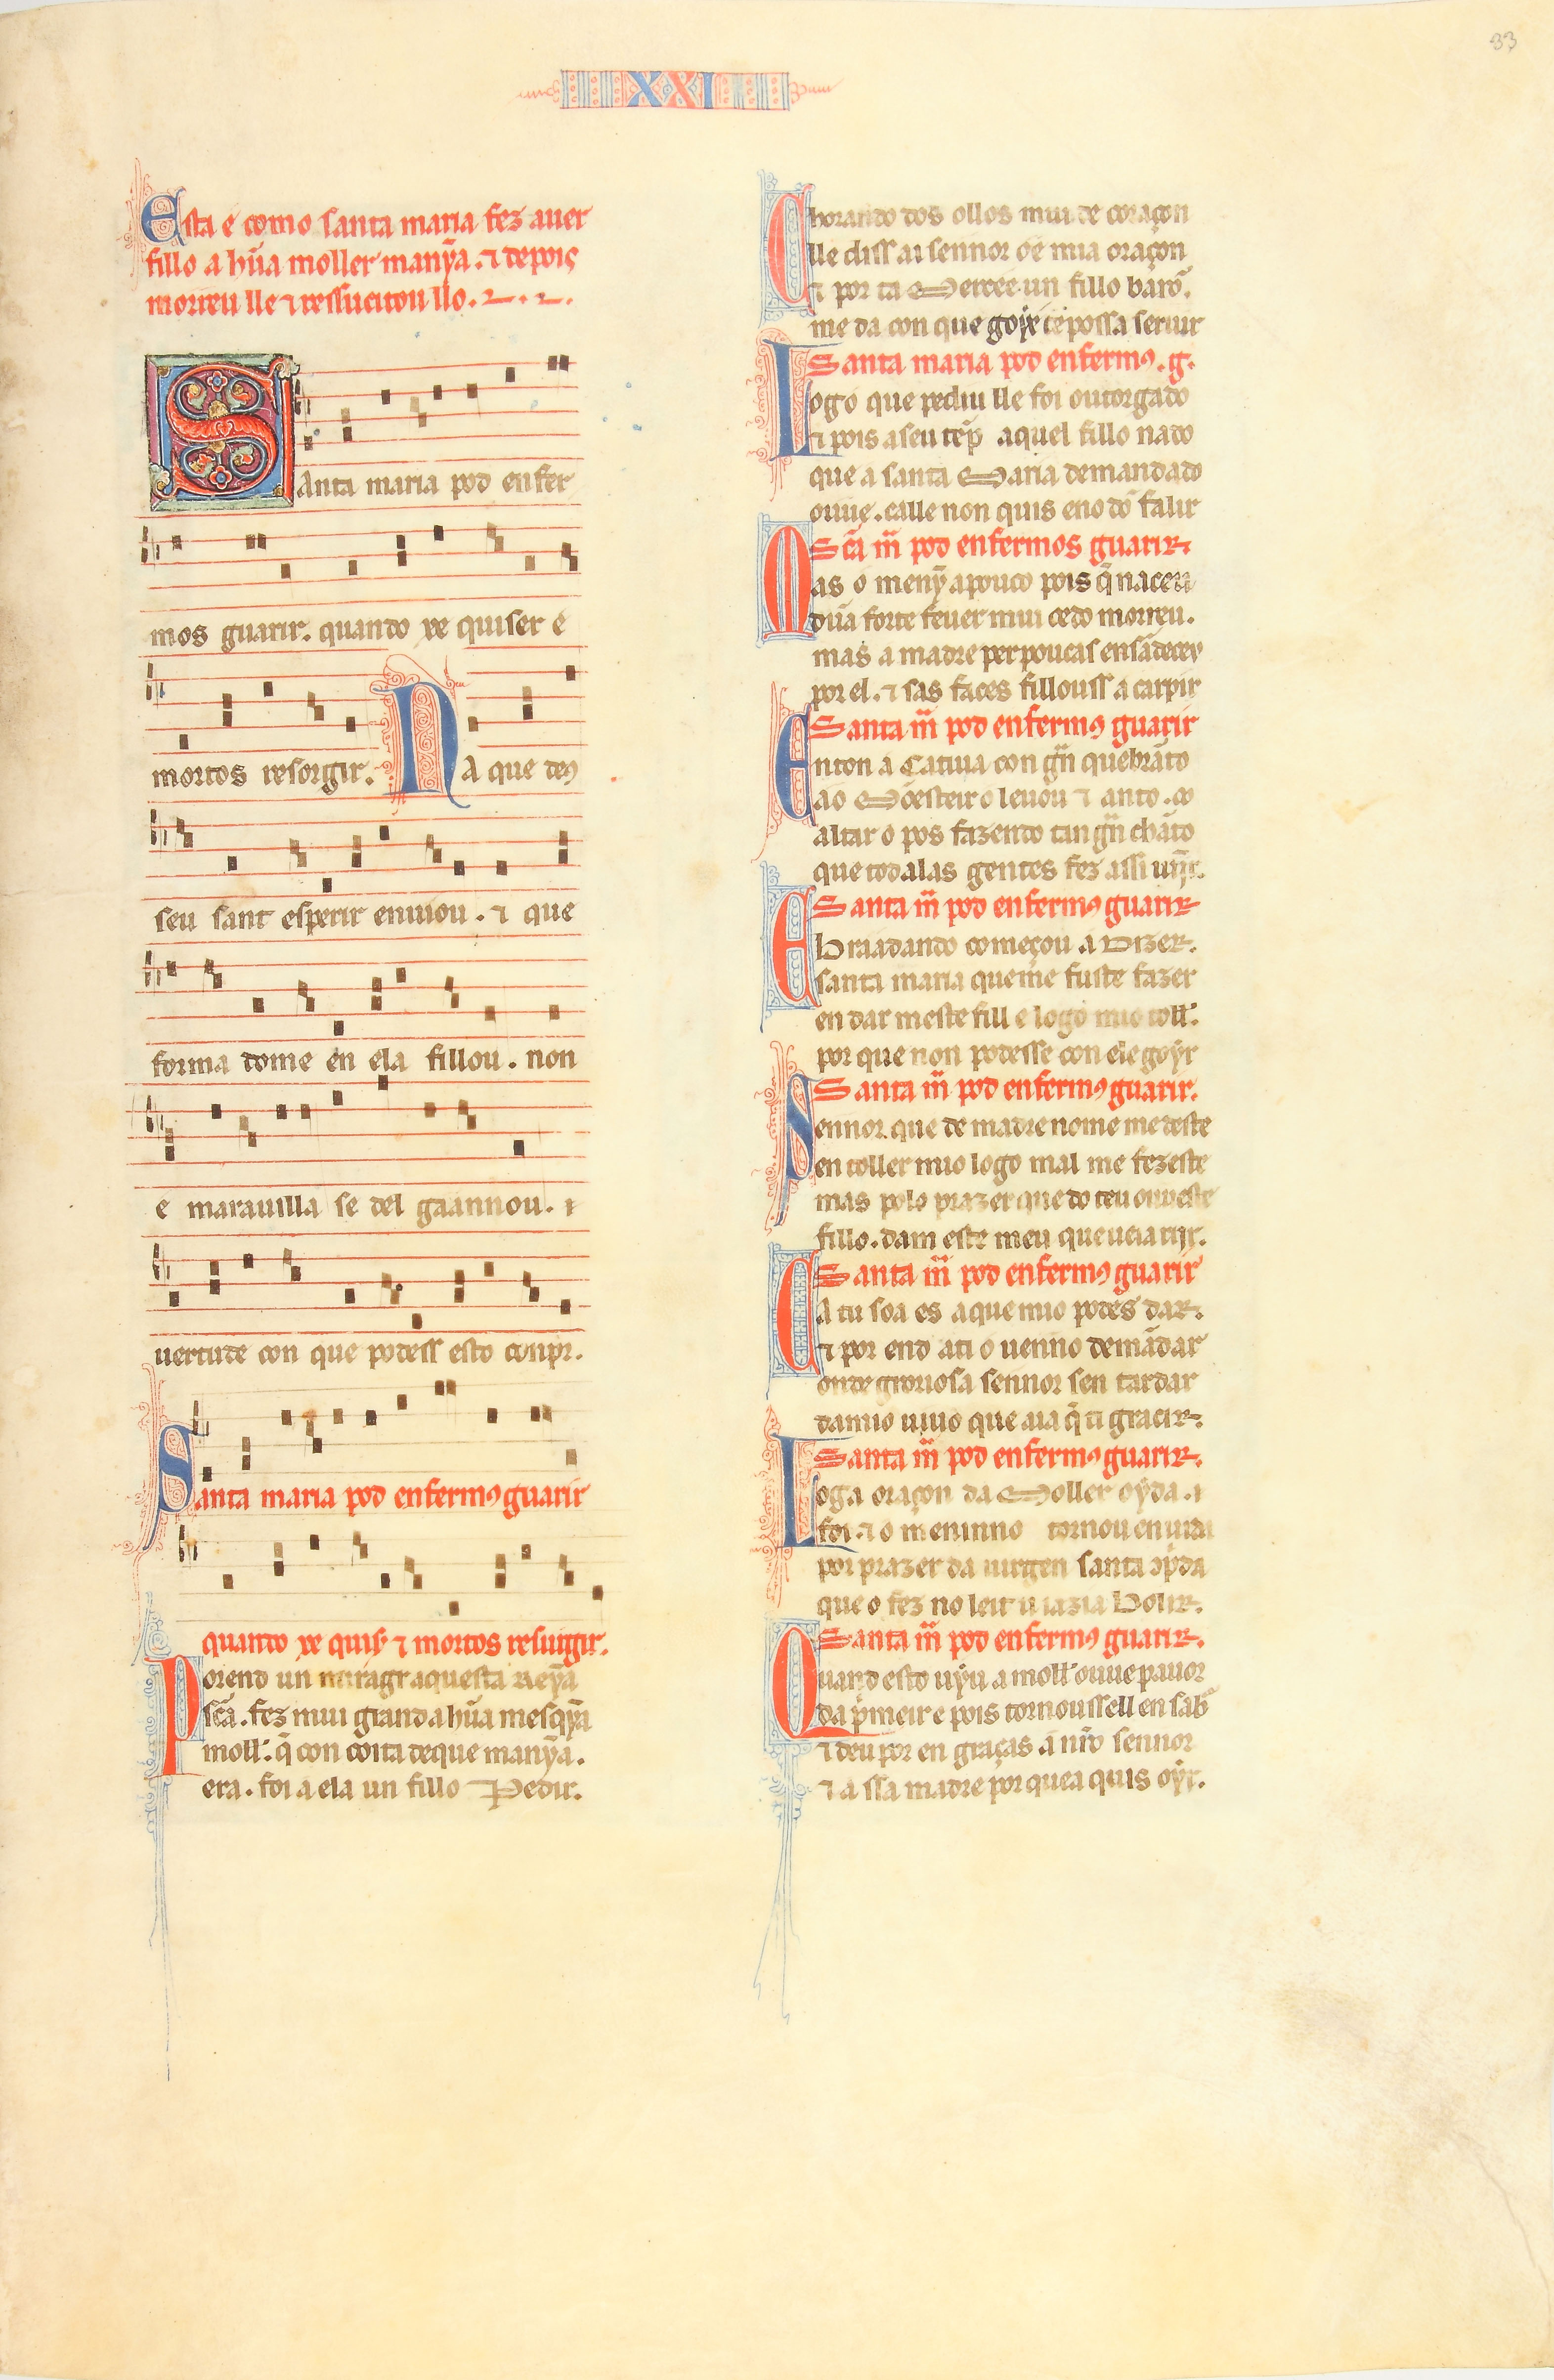 33
XXI
Esta e como santa maria fez auer
fillo a hũa moller manỹa. ⁊ depois
morreu lle ⁊ ressucitou llo.
Santa maria pod enfer
mos guarir. quando xe quiser e
mortos resorgir. Na que deꝰ
seu sant esperit enuiou. ⁊ que
forma dome en ela fillou. non
e marauilla se del gaannou. ⁊
uertude con que podess esto conpr.
Santa maria pod enfermꝰ guarir
quando xe quis̾ ⁊ mortos resurgir.
Porend un miragr aquesta Reỹa
sc̃a. fez mui grand a hũa mesqỹa
moll̾. q̃ con coita deque manỹa.
era. foi a ela un fillo Pedir.
Chorando dos ollos mui de coraçon
lle diss ai sennor oe mia oraçon
⁊ por ta Mercee un fillo barõ.
me da con que goye te possa seruir
Santa maria pod enfermꝰ. g.
Logo que pediu lle foi outorgado
⁊ pois a seu tẽp aquel fillo nado
que a santa Maria demandado
ouue. calle non quis eno dõ falir
Sc̃a m̃ pod enfermos guarir
Mas o menỹ apouco pois q̃ naceu
dũa forte feuer mui cedo morreu.
mas a madre per poucas ensãdeceu
por el. ⁊ sas faces fillouss a carpir
Santa m̃ pod enfermꝰ guarir
Enton a Catiua con gñ quebrãto
ao Mõesteir o leuou ⁊ anto. o
altar o pos fazendo tan gñ chãto
que todalas gentes fez assi uĩr.
Santa m̃ pod enfermꝰ guarir
E Braadando começou a Dizer.
santa maria que me fuste fazer
en dar meste fill e logo mio toll̾.
por que non podesse con ele goyr
Santa m̃ pod enfermꝰ guarir.
Sennor que de madre nome me deste
en toller mio logo mal me fezeste
mas polo prazer que do teu ouueste
fillo. dam este meu que ueia rijr.
Santa m̃ pod enfermꝰ guarir
Ca tu soa es a que mio podes dar.
⁊ por end a ti o uenno demãdar
onde groriosa sennor sen tardar
damio uiuo que aia q̃ ti gracir.
Santa m̃ pod enfermꝰ guarir.
Loga oraçon da Moller oyda. ⁊
foi. ⁊ o meninno tornou en uida
por prazer da uirgen santa ↄp̃da
que o fez no leit u iazia Bolir.
Santa m̃ pod enfermꝰ guarir.
Quand esto uyu a moll̾ ouue pauor
da p̾meir e pois tornoussell en sab̃
⁊ deu por en graças a nr̃o sennor
⁊ a ssa madre por que a quis oyr.